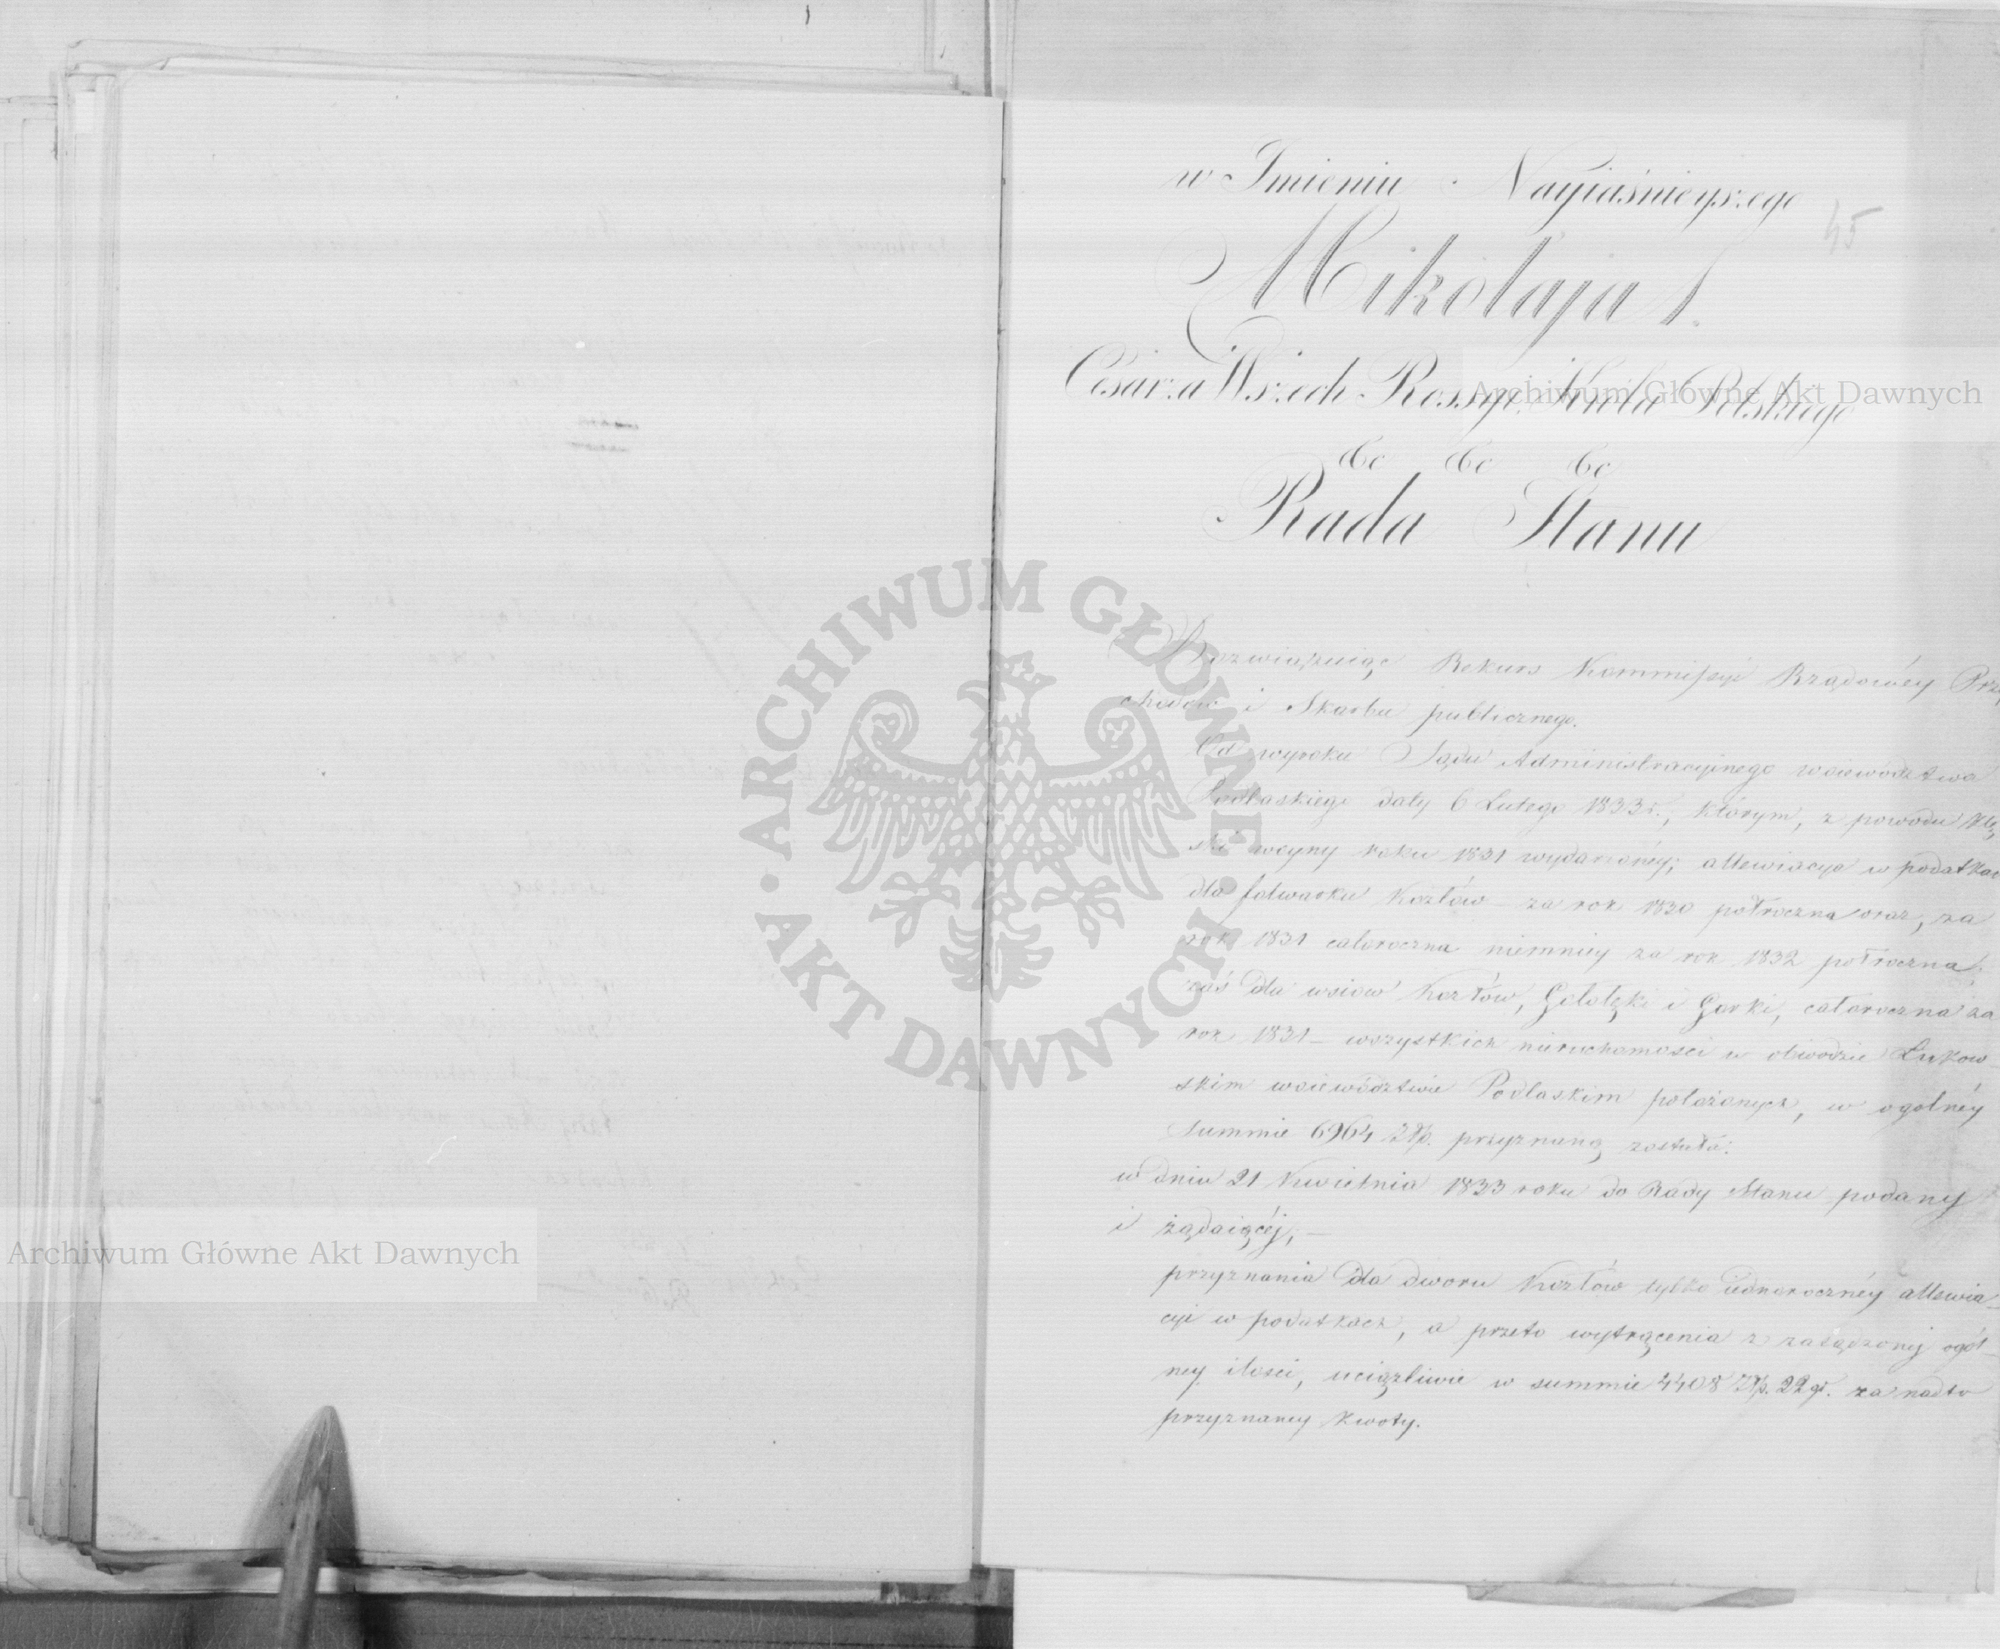 w Imieniu Nayiaśnieyszego
45
Mikołaja I.
Cesarza Wszech Rossyi, Króla Polskiego
&c &c &c
Rada Stanu
Rozwiązuiąc Rekurs Kommissyi Rządowéy Przy
chodów i Skarbu publicznego.
Od wyroku Sądu Administracyinego woiewództwa
Podlaskiego daty 6 Lutego 1833 r., którym, z powodu klę
ski woyny roku 1831 wydarzonéy; allewiacya w podatkac
dla folwarku Kozłów – za rok 1830 półroczna oraz, za
rok 1831 całoroczna niemniey za rok 1832 półroczna;
zaś dla wsiow Kozłów, Gołołęki i Gorki, całoroczna za
rok 1831 – wszystkich nieruchomości w obwodzie Łukow-
skim woiewództwie Podlaskim położonych, w ogólnéy
summie 6964 Złp. przyznaną została;
w dniu 21 Kwietnia 1833 roku do Rady Stanu podany
i żądaiącéj, –
przyznania dla dworu Kozłów tylko iednorocznéy allewia-
cyi w podatkach, a przeto wytrącenia z zasądzonej ogól-
ney ilości, uciążliwie w summie 4408 Złp. 22 gr. za nadto
przyznaney kwoty.
ARCHIWUM GŁÓWNE AKT DAWNYCH
Archiwum Główne Akt Dawnych
Archiwum Główne Akt Dawnych